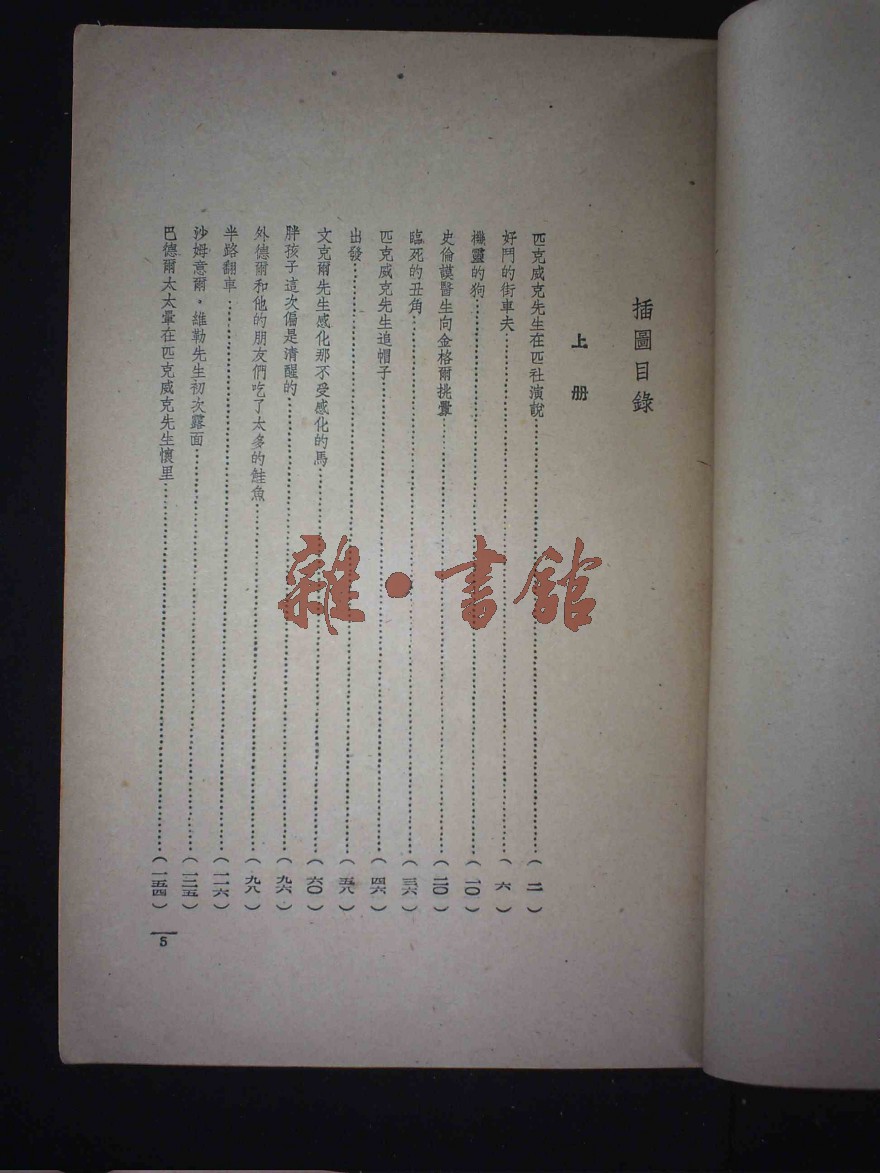 插圖目錄
上册
匹克威克先生在匹社演說……(二)
好鬥的街車夫……(六)
機靈的狗……(一〇)
史倫謨醫生向金格爾挑釁……(二〇)
臨死的丑角……(三六)
匹克威克先生追帽子……(四六)
出發……(五八)
文克爾先生感化那不受感化的馬……(六〇)
胖孩子這次偏是清醒的……(九六)
外德爾和他的朋友們吃了太多的鮭魚……(九八)
半路翻車……(一一六)
沙姆意爾·維勒先生初次露面……(一二五)
巴德爾太太暈在匹克威克先生懷里……(一五四)
5
雜·書館